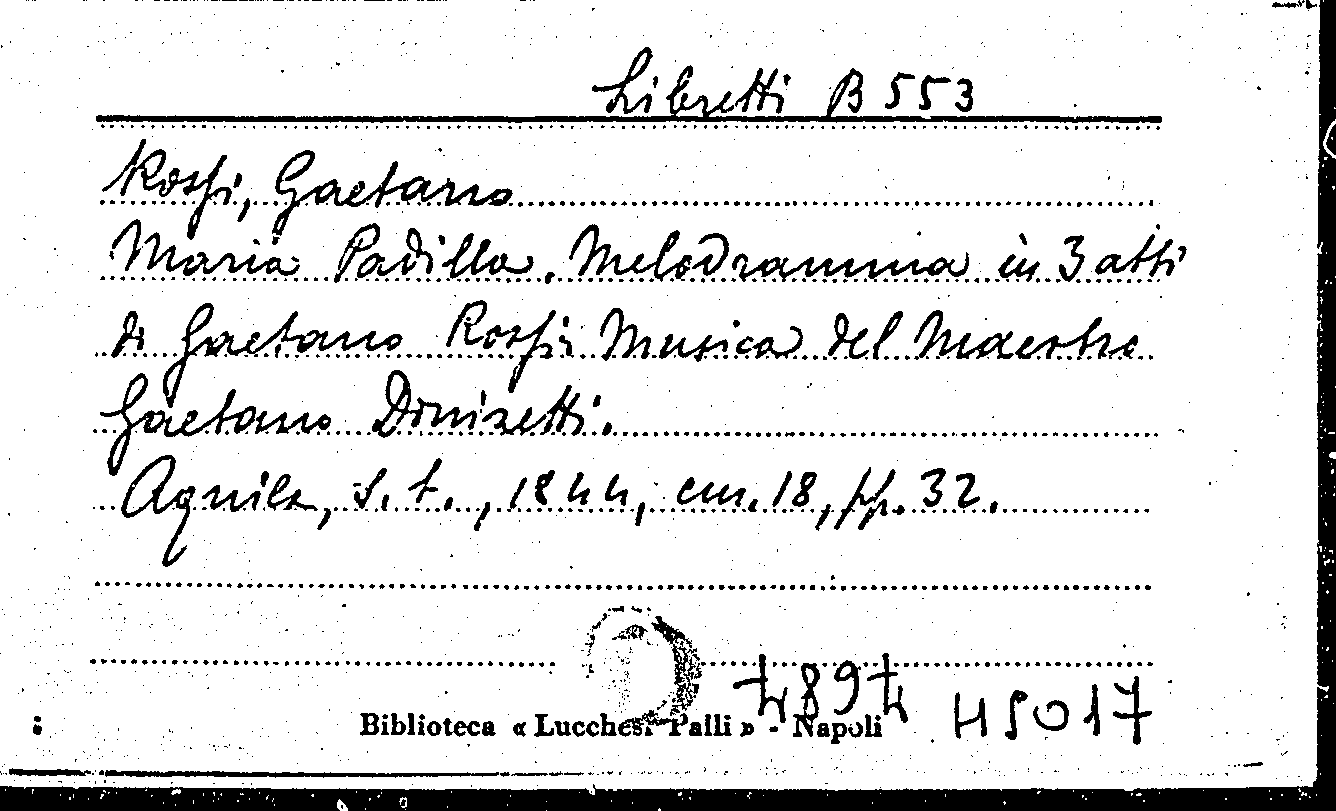 Libretti B 553
Rossi, Gaetano
Maria Padilla. Melodramma in 3 atti
di Gaetano Rossi Musica del Maestro
Gaetano Donizetti.
Aquila, s.t., 1844, cm. 18, pp. 32.
Biblioteca « Lucchesi Palli » - Napoli